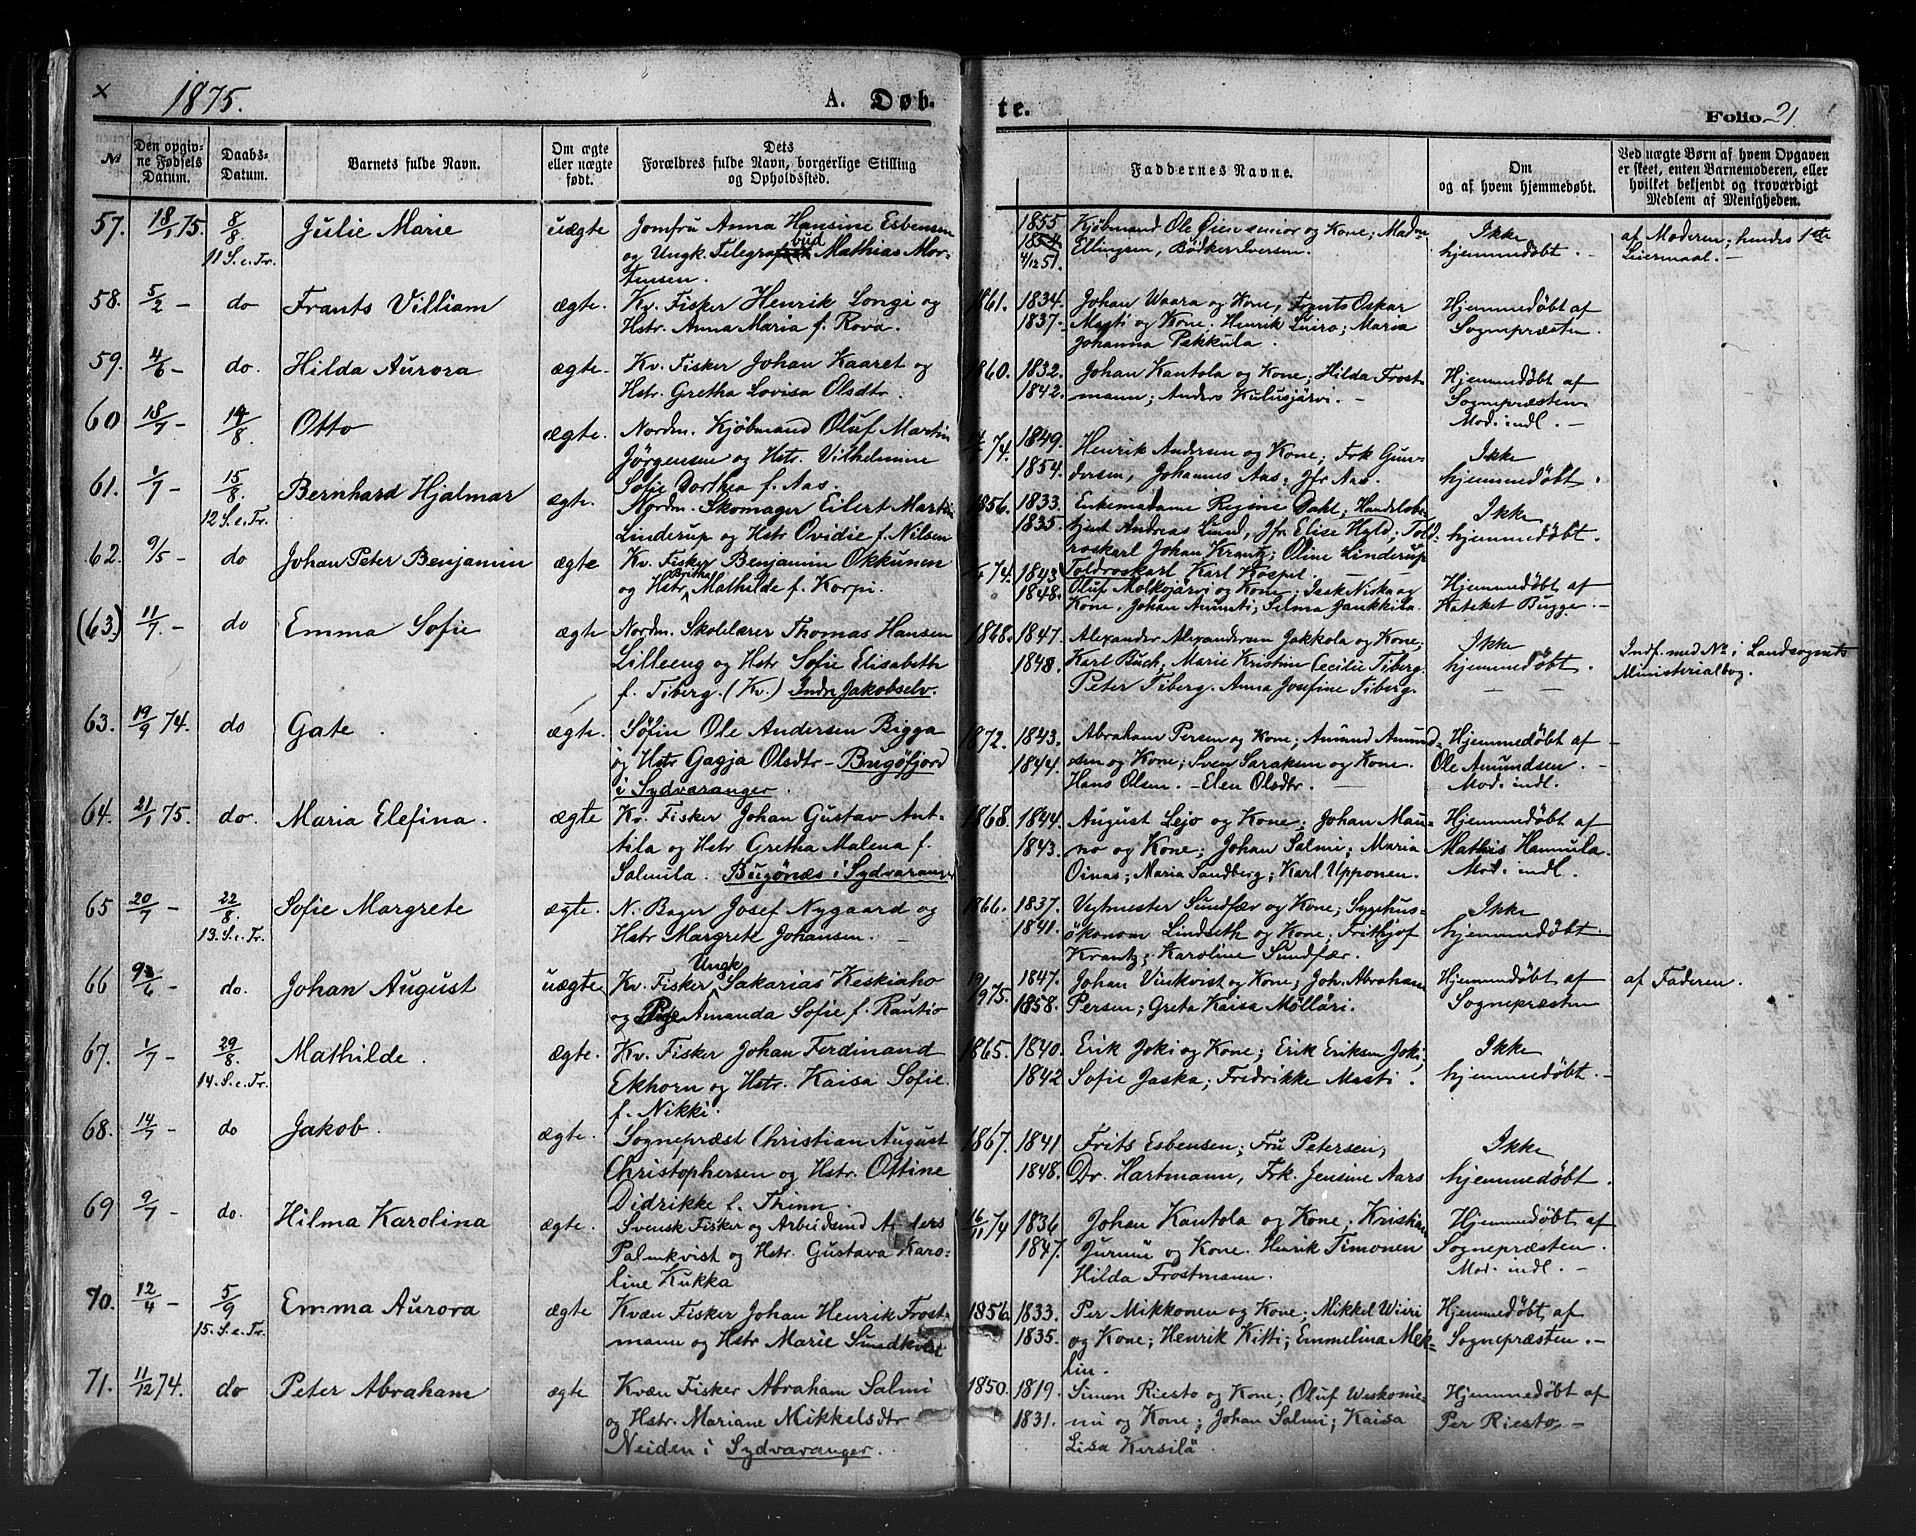 1875.
A. Døb-
te.
Folio 21.
№
Den opgivne Fødsels Datum.
Daabs-Datum.
Barnets fulde Navn.
Om ægte eller uægte født.
Dets Forældres fulde Navn, borgerlige Stilling og Opholdssted.
Faddernes Navne.
Om og af hvem hjemmedøbt.
Ved uægte Børn af hvem Opgaven er skeet, enten Barnemoderen, eller hvilket bekjendt og troværdigt Medlem af Menigheden.
57. 18/1 75. 8/8 11 S. e. Tr. Julie Marie uægte
Jomfru Anna Hansine Esbensen
og Ungk. Telegrafbud Mathias Mor-
tensen.
1855 1854 4/12 51.
Kjøbmand Ole Øien senior og Kone; Madme
Ellingsen, Bødker Iversen.
Ikke
hjemmedøbt. -
af Moderen; hendes 1ste
Leiermaal. -
58. 5/2 - do Frants Villiam ægte.
Kv. Fisker Henrik Longi og
Hstr. Anna Maria f. Rova.
1861. 1834. 1837.
Johan Waara og Kone, Frants Oskar
Masti og Kone; Henrik Luiro; Maria
Johanna Pekkula.
Hjemmedøbt af
Sognepræsten.
59. 4/6 - do. Hilda Aurora ægte.
Kv. Fisker Johan Kaaret og
Hstr. Gretha Lovisa Olsdtr.
1860. 1832. 1842.
Johan Kantola og Kone; Hilda Frost-
mann; Anders Kulusjärvi. -
Hjemmedøbt af
Sognepræsten.
Mod. indl. -
60 18/7 - 14/8. Otto ægte.
Nordm. Kjøbmand Oluf Martin
Jørgensen og Hstr. Vilhelmine
Sofie Dorthea f. Aas.
74. 1849. 1854.
Henrik Andersen og Kone; Frk Gun-
dersen, Johannes Aas; Jfr Aas.
Ikke
hjemmedøbt.
61. 1/7 - 15/8. 12 S. e. Tr. Bernhard Hjalmar ægte.
Nordm. Skomager Eilert Martin
Linderup og Hstr Ovidie f. Nilsen
1856. 1833. 1835.
Enkemadame Regine Dahl; Handelsbe-
tjent Andreas Lund, Jfr Elise Hyld; Told-
roskarl Johan Krantz; Oline Linderup
Toldroskarl Karl Kospel.
Ikke
hjemmedøbt.
62. 9/5 - do Johan Peter Benjamin ægte
Kv. Fisker Benjamin Okkunen
og Hstr Britha Mathilde f. Korpi.
74. 1843 1848.
Oluf Molkojärvi og Kone; Isak Niska og
Kone, Johan Anunti; Selma Jankkila.
Hjemmedøbt af
Kateket Bugge. -
(63.) 11/7. - do Emma Sofie ægte
Nordm. Skolelærer Thomas Hansen
Lilleeng og Hstr Sofie Elisabeth
f. Tiberg. (Kv.) Indre Jakobselv.
1868. 1847. 1848.
Alexander Alexandersen Jakkola og Kone;
Karl Buch; Marie Kristine Cecilie Tiberg.
Peter Tiberg. Anna Josefine Tiberg.
Ikke
hjemmedøbt.
Indf. med No i Landsognets
Ministerialbog.
63. 19/9 74. do Gate ægte.
Søfin Ole Andersen Bigga
og Hstr Gagja Olsdtr - Bugøfjord
i Sydvaranger.
1872. 1843. 1844.
Abraham Persen og Kone; Amund Amund-
sen og Kone; Sven Saraksen og Kone.
Hans Olsen. - Elen Olsdtr.
Hjemmedøbt af
Ole Amundsen.
Mod. indl.
64. 21/1 75. do. Maria Elefina. ægte
Kv. Fisker Johan Gustav Ant-
tila og Hstr Gretha Malena f.
Salmila. Bugönæs i Sydvaranger
1868. 1844. 1843.
August Lejo og Kone; Johan Mau-
no og Kone; Johan Salmi; Maria
Oinas; Maria Sandberg; Karl Upponen.
Hjemmedøbt af
Mathis Hannula.
Mod. indl.
65 20/7 - 22/8. 13. S. e. Tr. Sofie Margrete ægte.
N. Bager Josef Nygaard og
Hstr Margrete Johansen.
1866. 1837. 1841.
Veimester Sundfær og Kone; Sygehus-
økonom Lindseth og Kone; Frithjof
Krantz; Karoline Sundfær.
Ikke
hjemmedøbt.
66 /6 - do. Johan August uægte
Kv. Fisker Ungk. Sakarias Keskiaho
og Pige Amanda Sofie f. Rautio
75. 1847. 1858.
Johan Vinkvist og Kone; Joh. Abraham
Persen; Greta Kaisa Mölläri.
Hjemmedøbt af
Sognepræsten
af Faderen.
67. 1/7 - 29/8. 14. S. e. Tr. Mathilde. ægte.
Kv. Fisker Johan Ferdinand
Ekhorn og Hstr. Kaisa Sofie
f. Nikki.
1865. 1840. 1842
Erik Joki og Kone; Erik Eriksen Joki;
Sofie Jaska; Fredrikke Masti.
Ikke
hjemmedøbt.
68. 14/7 - do Jakob. ægte.
Sognepræst Christian August
Christophersen og Hstr. Ottine
Didrikke f. Thinn.
1867. 1841 1848.
Frits Esbensen; Fru Petersen;
Dr. Hartmann, Frk. Jensine Aars
Ikke
hjemmedøbt.
69 9/7 - do. Hilma Karolina ægte.
Svensk Fisker og Arbeidsmd Anders
Palmkvist og Hstr. Gustava Karo-
line Kukka
16/11 74 1836 1847.
Johan Kantola og Kone; Kristian
Jurmu og Kone. Henrik Timonen
Hilda Frostmann.
Hjemmedøbt af
Sognepræsten.
Mod. indl. -
70. 12/4 - 5/9 15. S. e. Tr. Emma Aurora ægte
Kvæn Fisker Johan Henrik Frost-
mann og Hstr Marie Sundkvist
1856. 1833. 1835.
Per Mikkonen og Kone; Mikkel Wiiri
og Kone; Henrik Kitti; Emmelina Mek-
lin.
Hjemmedøbt af
Sognepræsten. -
71. 11/12 74. do Peter Abraham ægte
Kvæn Fisker Abraham Salmi
og Hstr. Mariane Mikkelsdtr
Neiden i Sydvaranger.
1850. 1819. 1831.
Simon Riesto og Kone; Oluf Weskonie-
mi og Kone; Johan Salmi; Kaisa
Lisa Kersilä
Hjemmedøbt af
Per Riesto. -